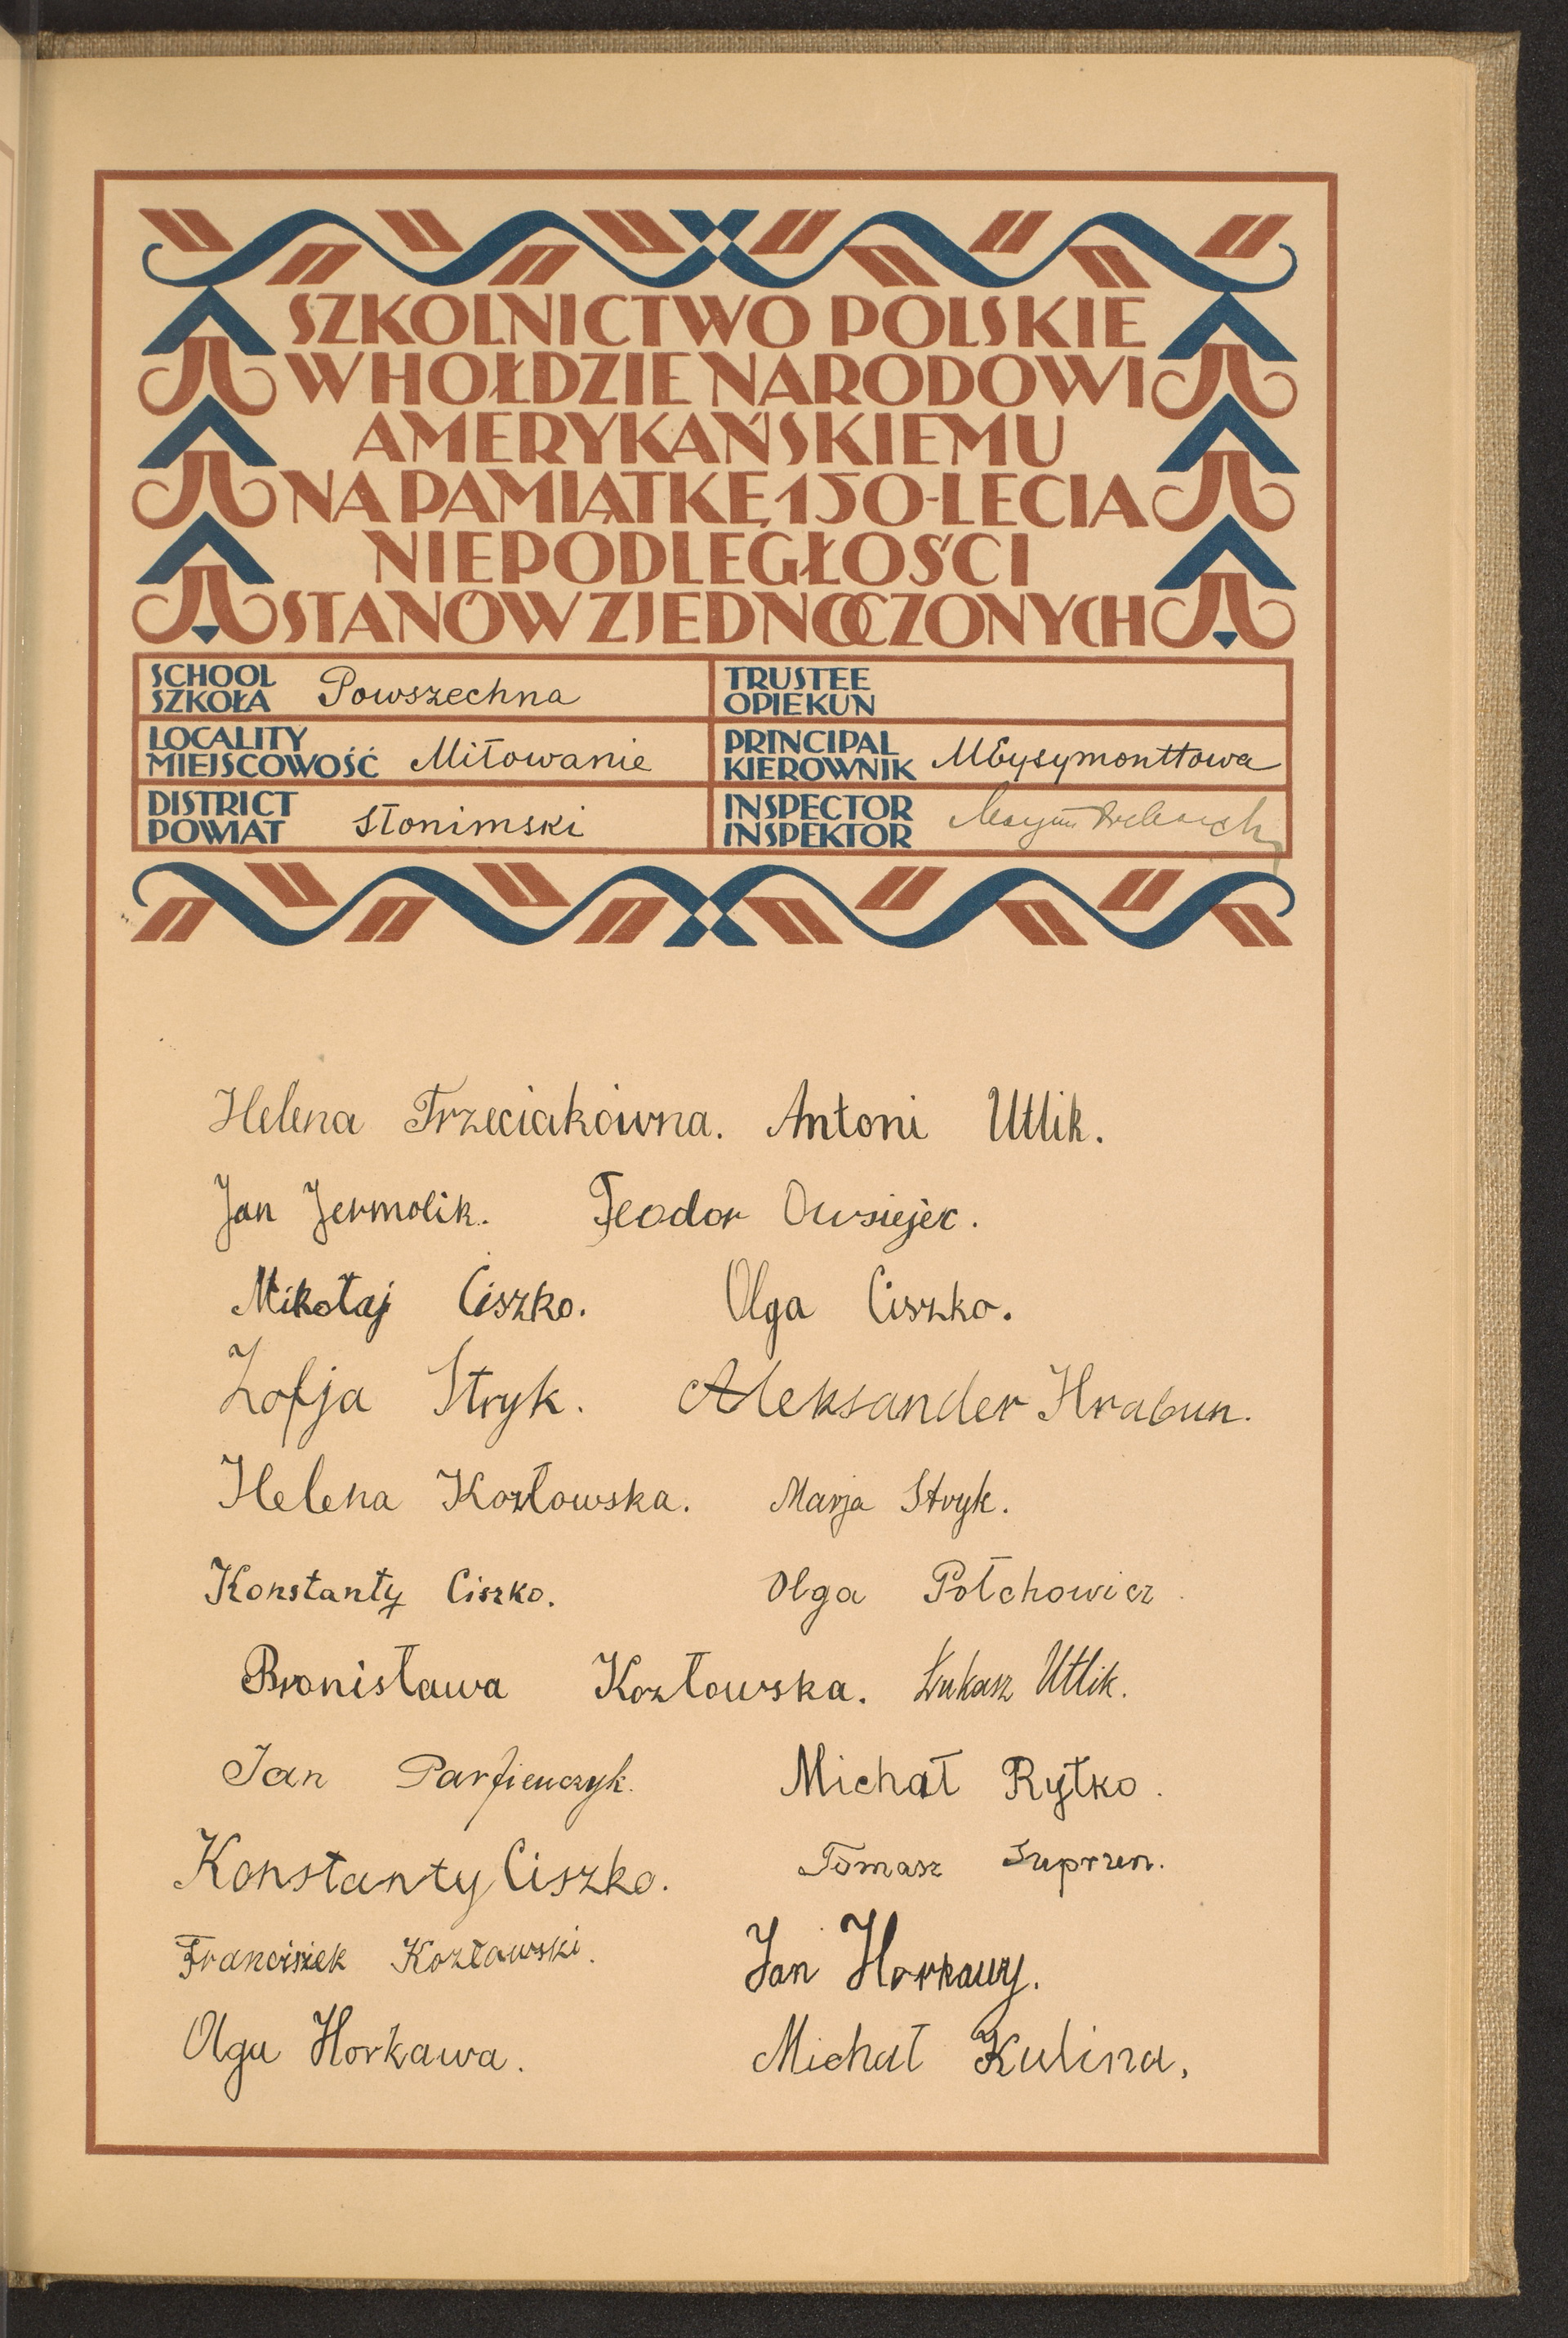 SZKOLNICTWO POLSKIE
W HOŁDZIE NARODOWI
AMERYKAŃSKIEMU
NA PAMIĄTKĘ 150-LECIA
NIEPODLEGŁOŚCI
STANÓW ZJEDNOCZONYCH
SCHOOL
SZKOŁA Powszechna
TRUSTEE
OPIEKUN
LOCALITY
MIEJSCOWOŚĆ Miłowanie
PRINCIPAL
KIEROWNIK
DISTRICT
POWIAT słonimski
INSPECTOR
INSPEKTOR
Helena Trzeciakówna. Antoni Utlik.
Jan Jermolik. Feodor Owsiejec.
Mikołaj Ciszko. Olga Ciszko.
Zofja Stryk. Aleksander Hrabun.
Helena Kozłowska. Marja Stryk.
Konstanty Ciszko. Olga Połchowicz
Bronisława Kozłowska. Łukasz Utlik.
Jan Parfienczyk. Michał Rytko.
Konstanty Ciszko. Tomasz Suprun.
Franciszek Kozławski. Jan Horkawy.
Olga Horkawa. Michał Kulina.